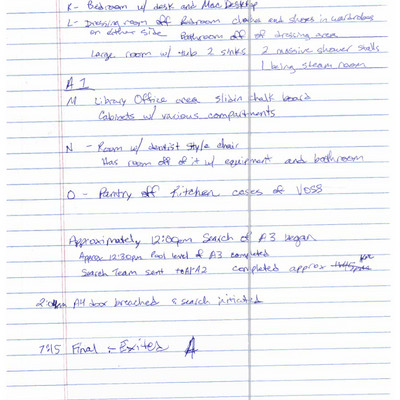 K - Bedroom w/ desk and Mac Desktop
L - Dressing room off Bedroom clothes and shoes in wardrobes
on either side Bathroom off of dressing area
Large room w/ tub 2 sinks 2 massive shower stalls
1 being steam room
A1
M Library Office area slidin chalk board
Cabinets w/ various compartments
N - Room w/ dentist style chair
Has room off of it w/ equipment and bathroom
O - Pantry off Kitchen cases of VOSS
Approximately 12:00pm Search of A3 began
Approx 12:30pm Pool level of A3 completed
Search Team sent to A1 A2 completed approx
A4 door breached & search initiated
7:15 Final - Exited A